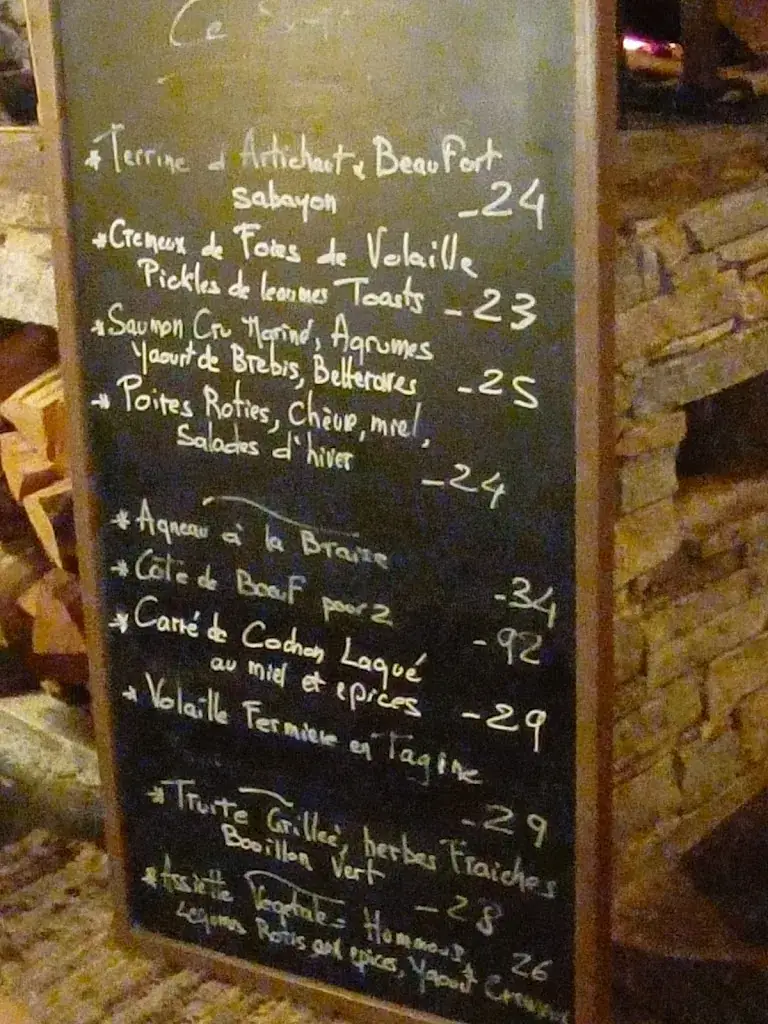 Ce
* Terrine d'Artichaut, Beaufort
sabayon - 24
* Cremeux de Foies de Volaille
Pickles de legumes Toasts - 23
* Saumon Cru Mariné, Agrumes
Yaourt de Brebis, Betteraves - 25
* Poires Roties, Chèvre, miel,
Salades d'hiver - 24
* Agneau à la Braise - 34
* Côte de Boeuf pour 2 - 92
* Carré de Cochon Laqué
au miel et epices - 29
* Volaille Fermiere en Tagine - 29
* Truite Grillée, herbes Fraiches
Bouillon Vert - 28
* Assiette Vegetale = Hommous, 26
Légumes Rotis aux epices, Yaourt Cremeux